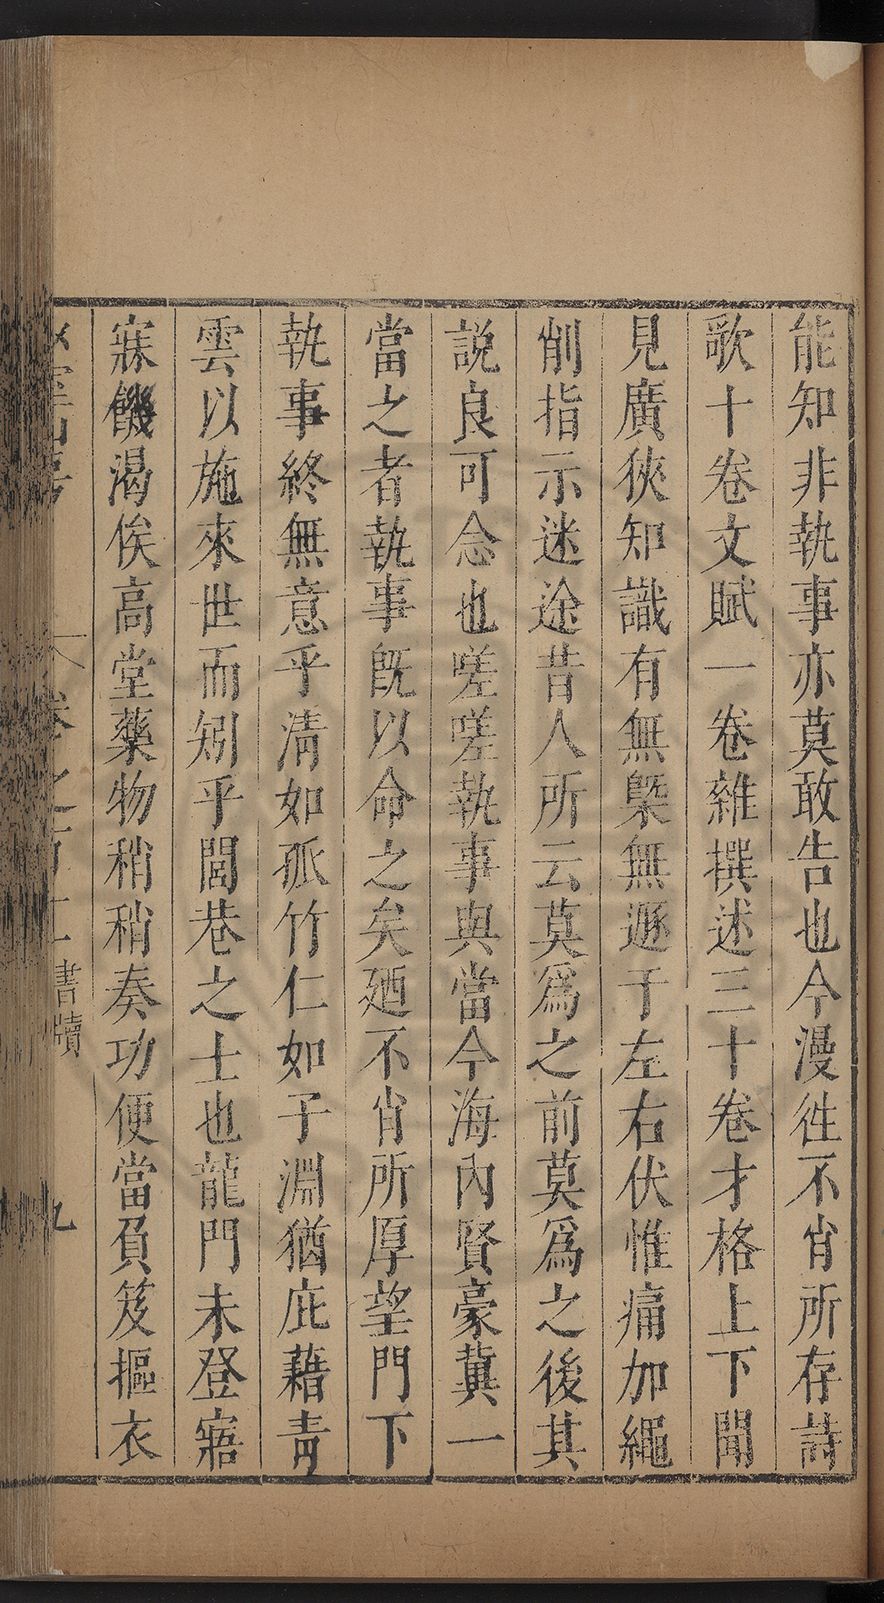 能知非執事亦莫敢告也今漫徃不肖所存詩
歌十卷文賦一卷雜撰述三十卷才格上下聞
見廣狹知識有無槩無遯于左右伏惟痛加繩
削指示迷途昔人所云莫爲之前莫爲之後其
説良可念也嗟嗟執事與當今海內賢豪冀一
當之者執事旣以命之矣廼不肖所厚望門下
執事終無意乎淸如孤竹仁如子淵猶庇藉靑
雲以施來世而矧乎閭巷之士也龍門未登寤
寐饑渴俟高堂藥物稍稍奏功便當負笈摳衣
卷之百十二 書牘 九